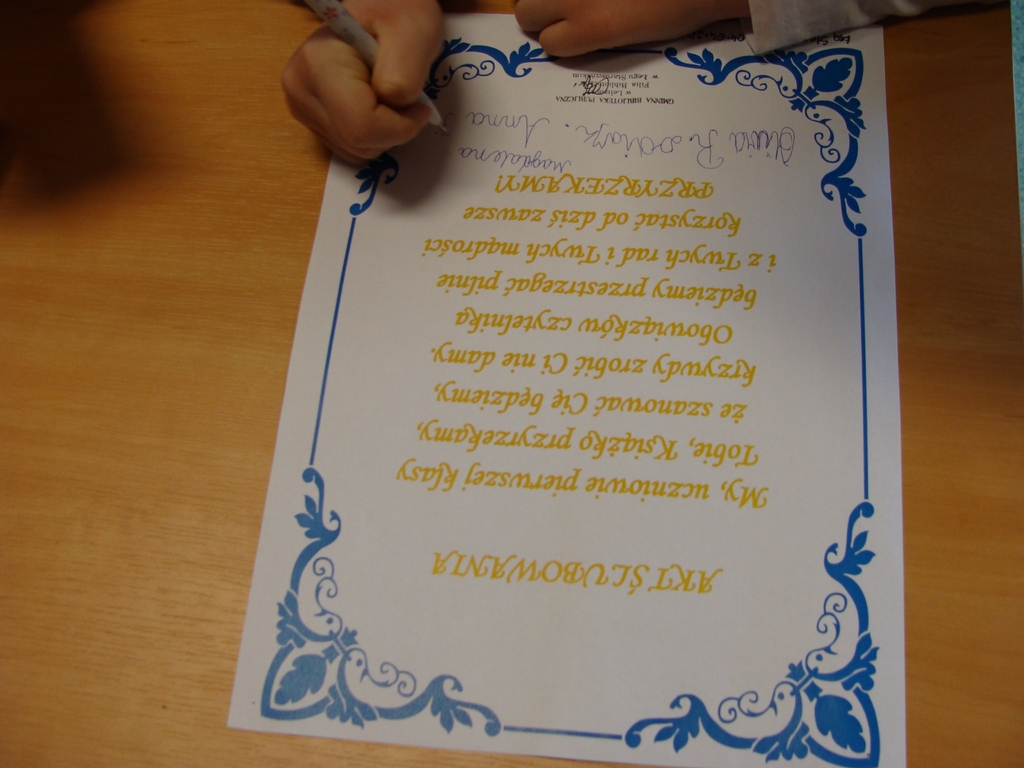 AKT ŚLUBOWANIA
My, uczniowie pierwszej klasy
Tobie, Książko przyrzekamy,
że szanować Cię będziemy,
krzywdy zrobić Ci nie damy.
Obowiązków czytelnika
będziemy przestrzegać pilnie
i z Twych rad i Twych mądrości
korzystać od dziś zawsze
PRZYRZEKAMY!
Magdalena
Oliwia R. Anna
GMINNA BIBLIOTEKA PUBLICZNA
w Lelisie
Filia Biblioteczna
w Łęgu Starościńskim